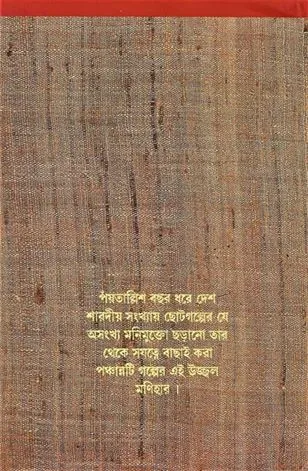 পঁয়তাল্লিশ বছর ধরে দেশ
শারদীয় সংখ্যায় ছোটগল্পের যে
অসংখ্য মনিমুক্তো ছড়ানো তার
থেকে সযত্নে বাছাই করা
পঞ্চান্নটি গল্পের এই উজ্জ্বল
মণিহার ।